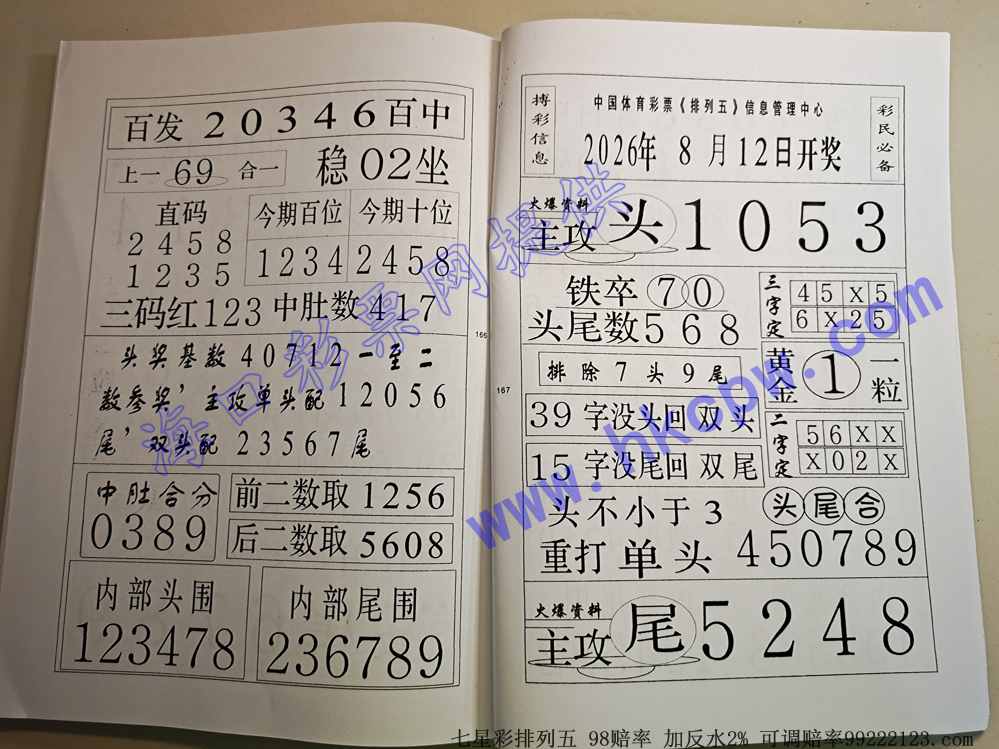 百发20346百中
上一 69 合一
稳02坐
直码
2458
1235
今期百位
1234
今期十位
2458
三码红123中肚数417
头奖基数40712一至二
数参奖’主攻单头配12056
尾’双头配23567尾
中肚合分
0389
前二数取1256
后二数取5608
内部头围
123478
内部尾围
236789
166
搏彩信息
中国体育彩票《排列五》信息管理中心
2026年8月12日开奖
彩民必备
火爆资料
主攻头1053
铁卒70
头尾数568
三字定
45X5
6X25
排除7头9尾
黄金①一粒
39字没头回双头
15字没尾回双尾
二字定
56XX
X02X
头不小于3
头尾合
重打单头450789
火爆资料
主攻尾5248
167
海口彩票网提供
www.hkcpw.com
七星彩排列五 98赔率 加反水2% 可调赔率99222123.com